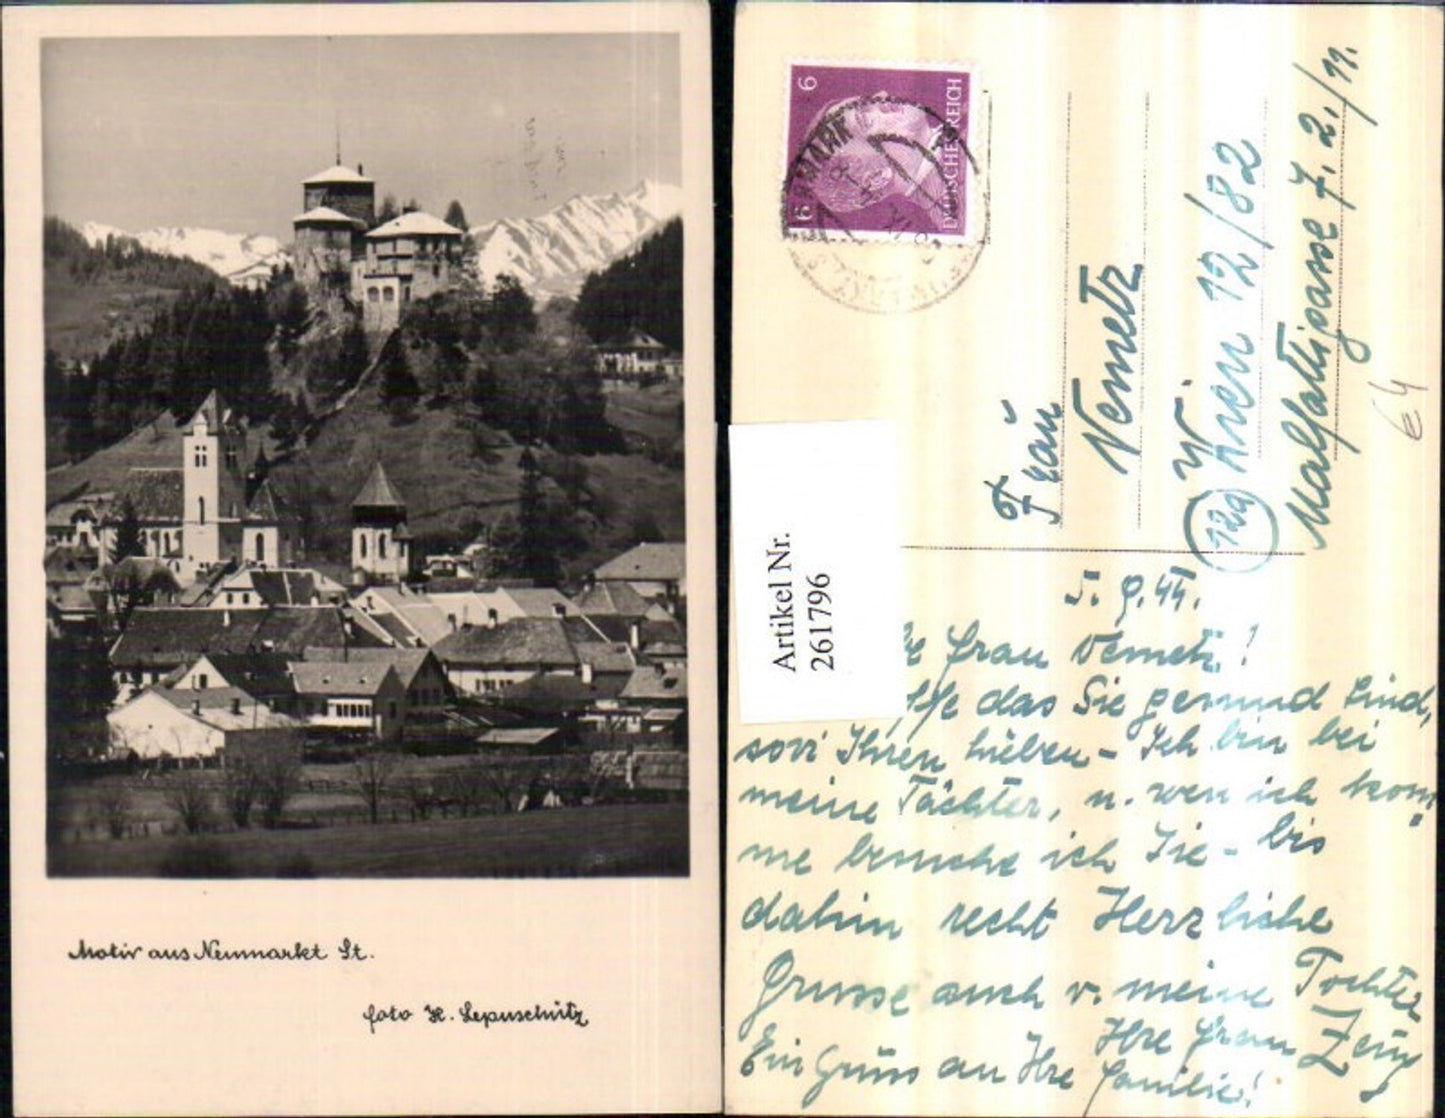 Motiv aus Neumarkt St.
foto H. Lepuschütz
6
6
DEUTSCHES REICH
Artikel Nr.
2617796
Fraŭ
Nemetz
Wien 12/82
12a
Malfattigasse 7, 2./11.
€4
5. 9. 44.
Frau Nemetz!
das Sie gesund Sind,
sovi Ihren lieben – Ich bin bei
meine Tächter, u. wen ich kom
me besuche ich Sie – bis
dahin recht Herzliche
Grusse auch v. meine Tochter
Ihre Frau Zeug
Ein Grüss an Ihre Familie!